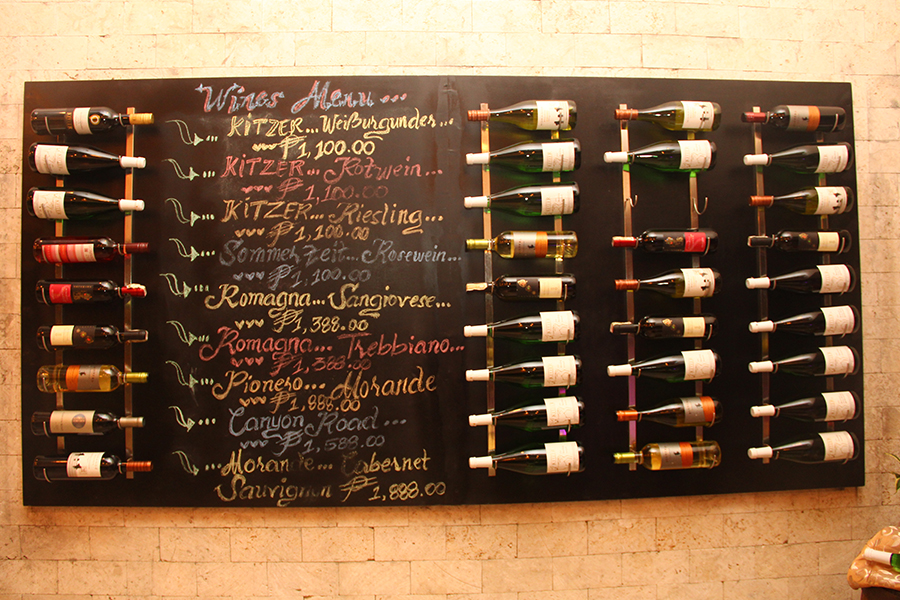 Wines Menu...
KITZER... Weißburgunder...
₱1,100.00
KITZER... Rotwein...
₱1,100.00
KITZER... Riesling...
₱1,100.00
Sommer Zeit... Rosewein...
₱1,100.00
Romagna... Sangiovese...
₱1,388.00
Romagna... Trebbiano...
₱1,388.00
Pionero... Morande
₱1,888.00
Canyon Road...
₱1,588.00
Morande... Cabernet
Sauvignon ₱1,888.00